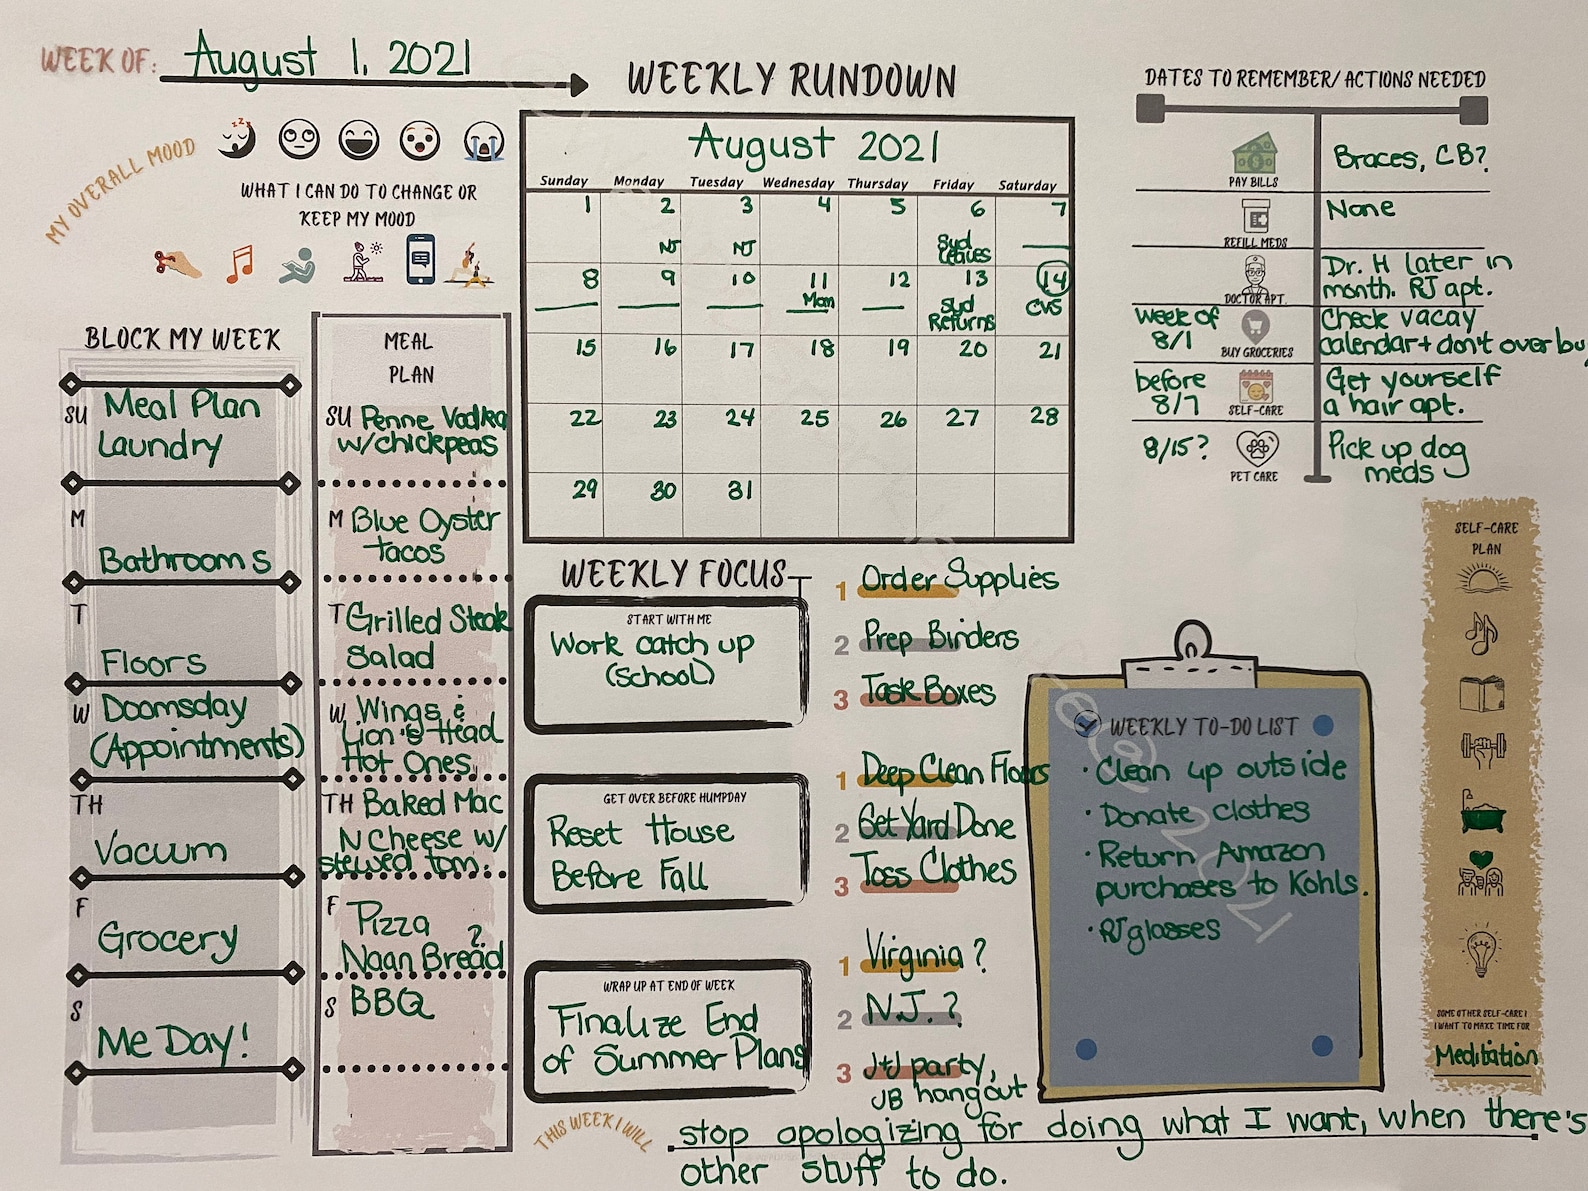 WEEK OF: August 1, 2021
MY OVERALL MOOD
WHAT I CAN DO TO CHANGE OR
KEEP MY MOOD
BLOCK MY WEEK
SU Meal Plan
Laundry
M
Bathrooms
T
Floors
W Doomsday
(Appointments)
TH
Vacuum
F
Grocery
S
Me Day!
MEAL
PLAN
SU Penne Vodka
w/chickpeas
M Blue Oyster
tacos
T Grilled Steak
Salad
W Wings &
Lion's Head
Hot Ones
TH Baked Mac
N Cheese w/
stewed tom.
F Pizza
Naan Bread ?
S BBQ
WEEKLY RUNDOWN
August 2021
Sunday Monday Tuesday Wednesday Thursday Friday Saturday
1 2 3 4 5 6 7
NJ NJ Syd
Leaves
8 9 10 11 12 13 14
Mom Syd CVS
Returns
15 16 17 18 19 20 21
22 23 24 25 26 27 28
29 30 31
WEEKLY FOCUS
START WITH ME
Work catch up
(school)
1 Order Supplies
2 Prep Binders
3 Task Boxes
GET OVER BEFORE HUMPDAY
Reset House
Before Fall
1 Deep Clean Floors
2 Get Yard Done
3 Toss Clothes
WRAP UP AT END OF WEEK
Finalize End
of Summer Plans
1 Virginia ?
2 N.J. ?
3 J+J party,
JB hangout
THIS WEEK I WILL
stop apologizing for doing what I want, when there's
other stuff to do.
DATES TO REMEMBER/ ACTIONS NEEDED
PAY BILLS
Braces, CB?
REFILL MEDS
None
DOCTOR APT.
Dr. H later in
month. RJ apt.
week of
8/1
BUY GROCERIES
Check vacay
calendar + don't over bu
before
8/7
SELF-CARE
Get yourself
a hair apt.
8/15?
PET CARE
Pick up dog
meds
WEEKLY TO-DO LIST
· Clean up outside
· Donate clothes
· Return Amazon
purchases to Kohls.
· RJ glasses
SELF-CARE
PLAN
SOME OTHER SELF-CARE I
I WANT TO MAKE TIME FOR
Meditation